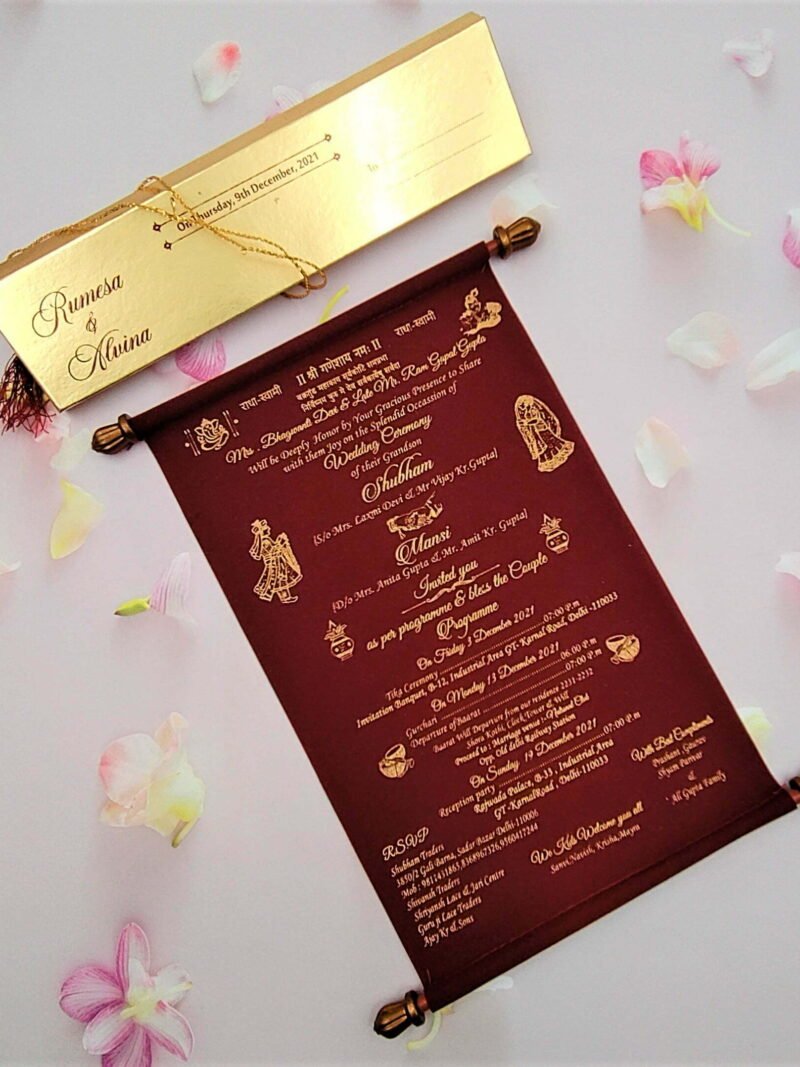 On Thursday, 9th December, 2021
To
Rumesa
&
Alvina
राधा-स्वामी
॥ श्री गणेशाय नमः ॥
राधा-स्वामी
वक्रतुंड महाकाय सूर्यकोटि समप्रभा
निर्विघ्नम कुरु मे देव सर्वकार्येषु सर्वदा
Mrs. Bhagwanti Devi & Late Mr. Ram Gopal Gupta
Will be Deeply Honor by Your Gracious Presence to Share
with them Joy on the Splendid Occassion of
Wedding Ceremony
of their Grandson
Shubham
[S/o Mrs. Laxmi Devi & Mr Vijay Kr.Gupta]
Mansi
[D/o Mrs. Anita Gupta & Mr. Amit Kr. Gupta]
Invited you
as per programme & bless the Couple
Programme
On Friday 3 December 2021
Tika Ceremony......07:00 P.m
Invitation Banquet, B-12, Industrial Area GT-Karnal Road, Delhi -110033
On Monday 13 December 2021
Gurchari......06.00 P.m
Departure of Baarat......07:00 P.m
Baarat Will Departure from our residence 2231-2232
Shora Kothi, Clock Tower & Will
Proceed to : Marriage venue :- National Club
Opp. Old delhi Railway Station
On Sunday 19 December 2021
Reception party......07:00 P.m
Rajwada Palace, B-33, Industrial Area
GT-KarnalRoad, Delhi-110033
With Best Compliments
Prashant, Gaurav
Shyam Parivar
&
All Gupta Family
RSVP
Shubham Traders
3850/2 Gali Barna, Sadar Bazar Delhi-110006
Mob: 9811431865,8368962326,9560417244
Shivansh Traders
Shriyansh Lace & Jari Centre
Guru ji Lace Traders
Ajay Kr & Sons
We Kids Welcome you all
Sanvi,Navish, Krisha,Mayra